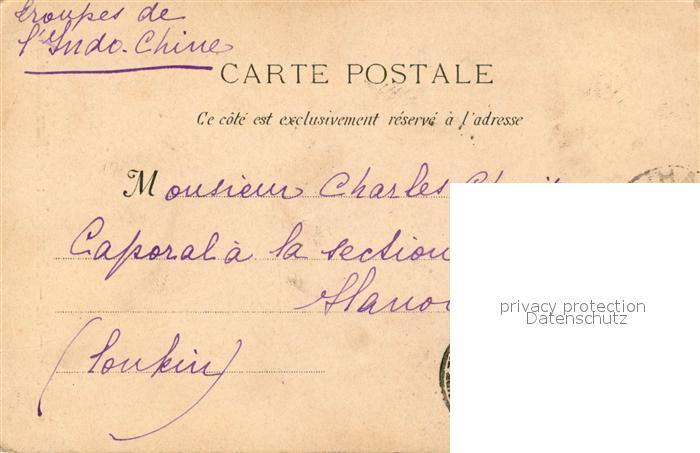 Troupes de
l'Indo-Chine
CARTE POSTALE
Ce côté est exclusivement réservé à l'adresse
Monsieur Charles
Caporal à la section
(Tonkin)
privacy protection
Datenschutz